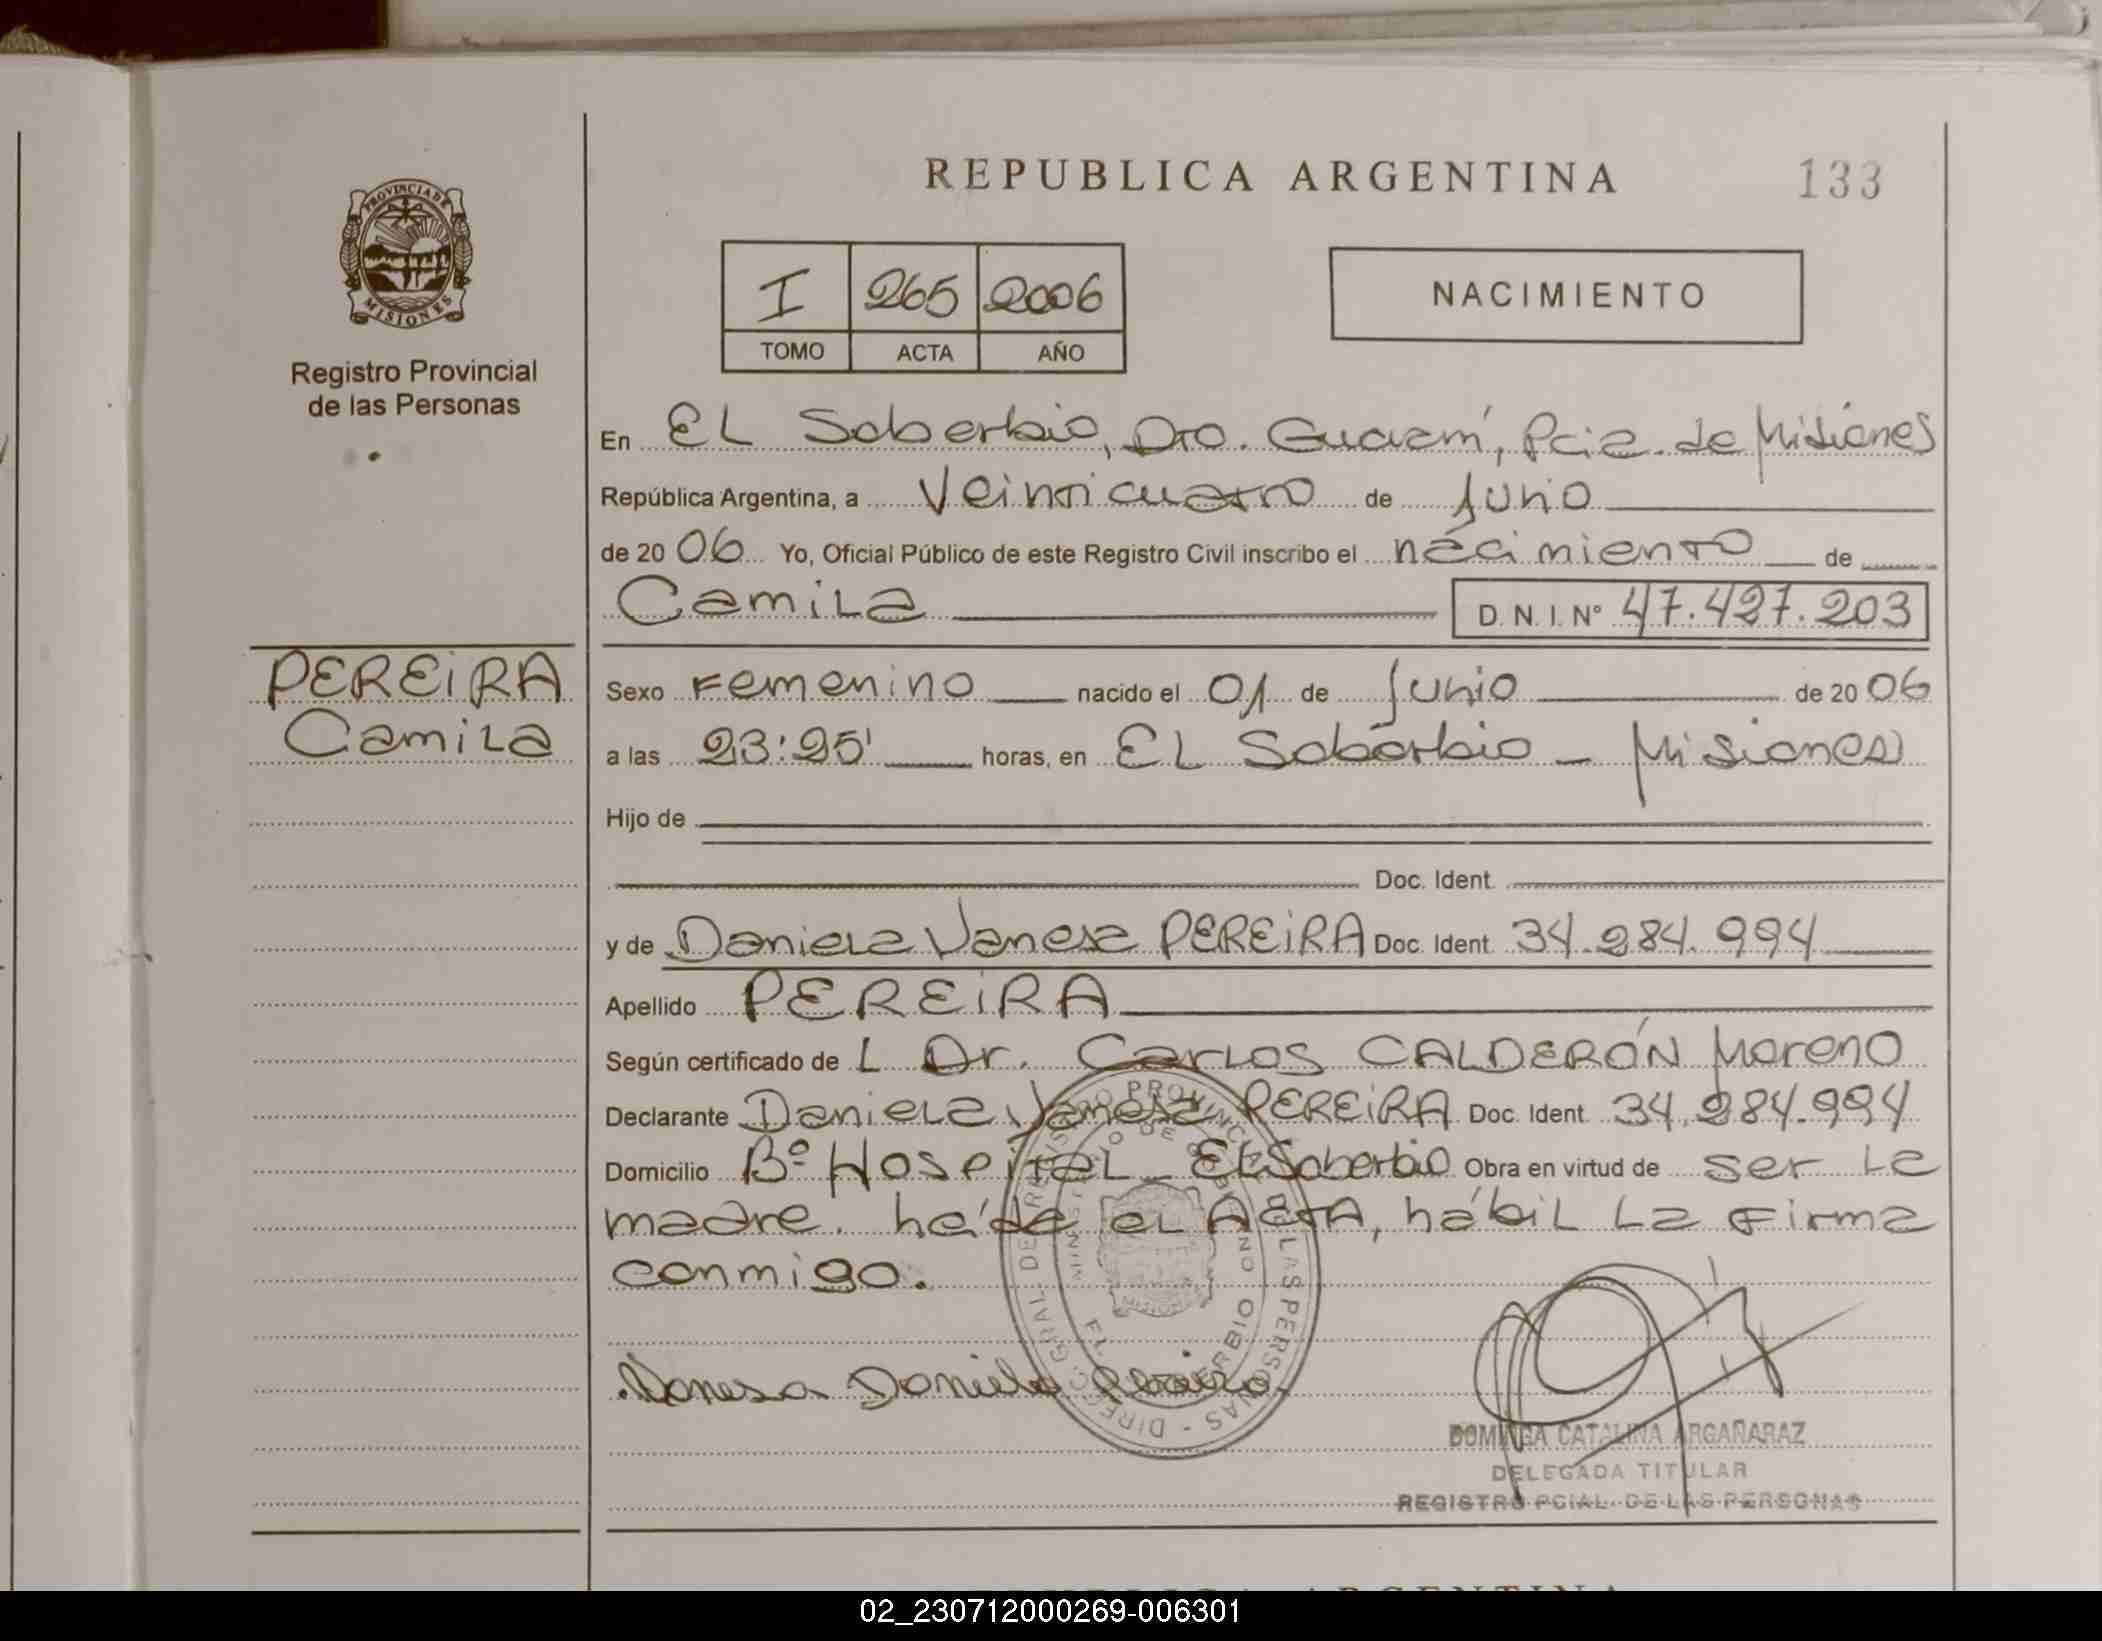 REPUBLICA ARGENTINA
133
PROVINCIA DE
MISIONES
Registro Provincial
de las Personas
I 265 2006
TOMO ACTA AÑO
NACIMIENTO
En EL Soberbio, Dto. Guaraní, Pcia. de Misiones
República Argentina, a Veinticuatro de Junio
de 2006 Yo, Oficial Público de este Registro Civil inscribo el nacimiento de
Camila D.N.I. N° 47.427.203
PEREIRA
Camila
Sexo Femenino nacido el 01 de Junio de 2006
a las 23:25' horas, en EL Soberbio - Misiones
Hijo de
Doc. Ident.
y de Daniela Vanesa PEREIRA Doc. Ident. 34.284.994
Apellido PEREIRA
Según certificado de L Dr. Carlos CALDERÓN Moreno
Declarante Daniela Vanesa PEREIRA Doc. Ident. 34.284.994
Domicilio B° Hospital - El Soberbio Obra en virtud de ser La
madre. el ACTA, hábil La Firma
conmigo.
Vanesa Daniela Pereira
DOMINGA CATALINA ARGAÑARAZ
DELEGADA TITULAR
REGISTRO PCIAL. DE LAS PERSONAS
02_230712000269-006301